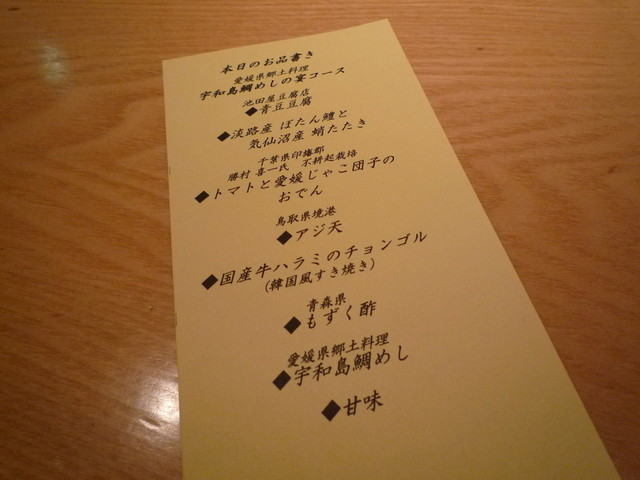 本日のお品書き
愛媛県郷土料理
宇和島鯛めしの宴コース
池田屋豆腐店
◆青豆豆腐
◆淡路産 ぼたん鱧と
気仙沼産 蛸たたき
千葉県印旛郡
勝村 喜一氏 不耕起栽培
◆トマトと愛媛じゃこ団子の
おでん
鳥取県境港
◆アジ天
◆国産牛ハラミのチョンゴル
(韓国風すき焼き)
青森県
◆もずく酢
愛媛県郷土料理
◆宇和島鯛めし
◆甘味